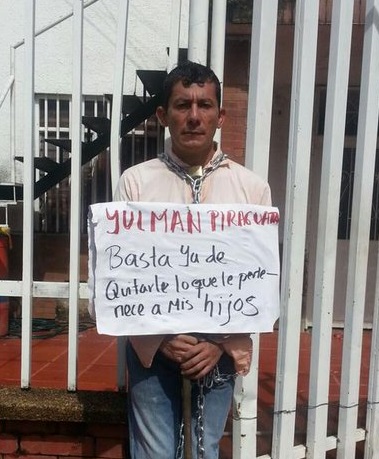 YULMAN PIRAGUATA
Basta Ya de
Quitarle lo que le perte-
nece a Mis hijos